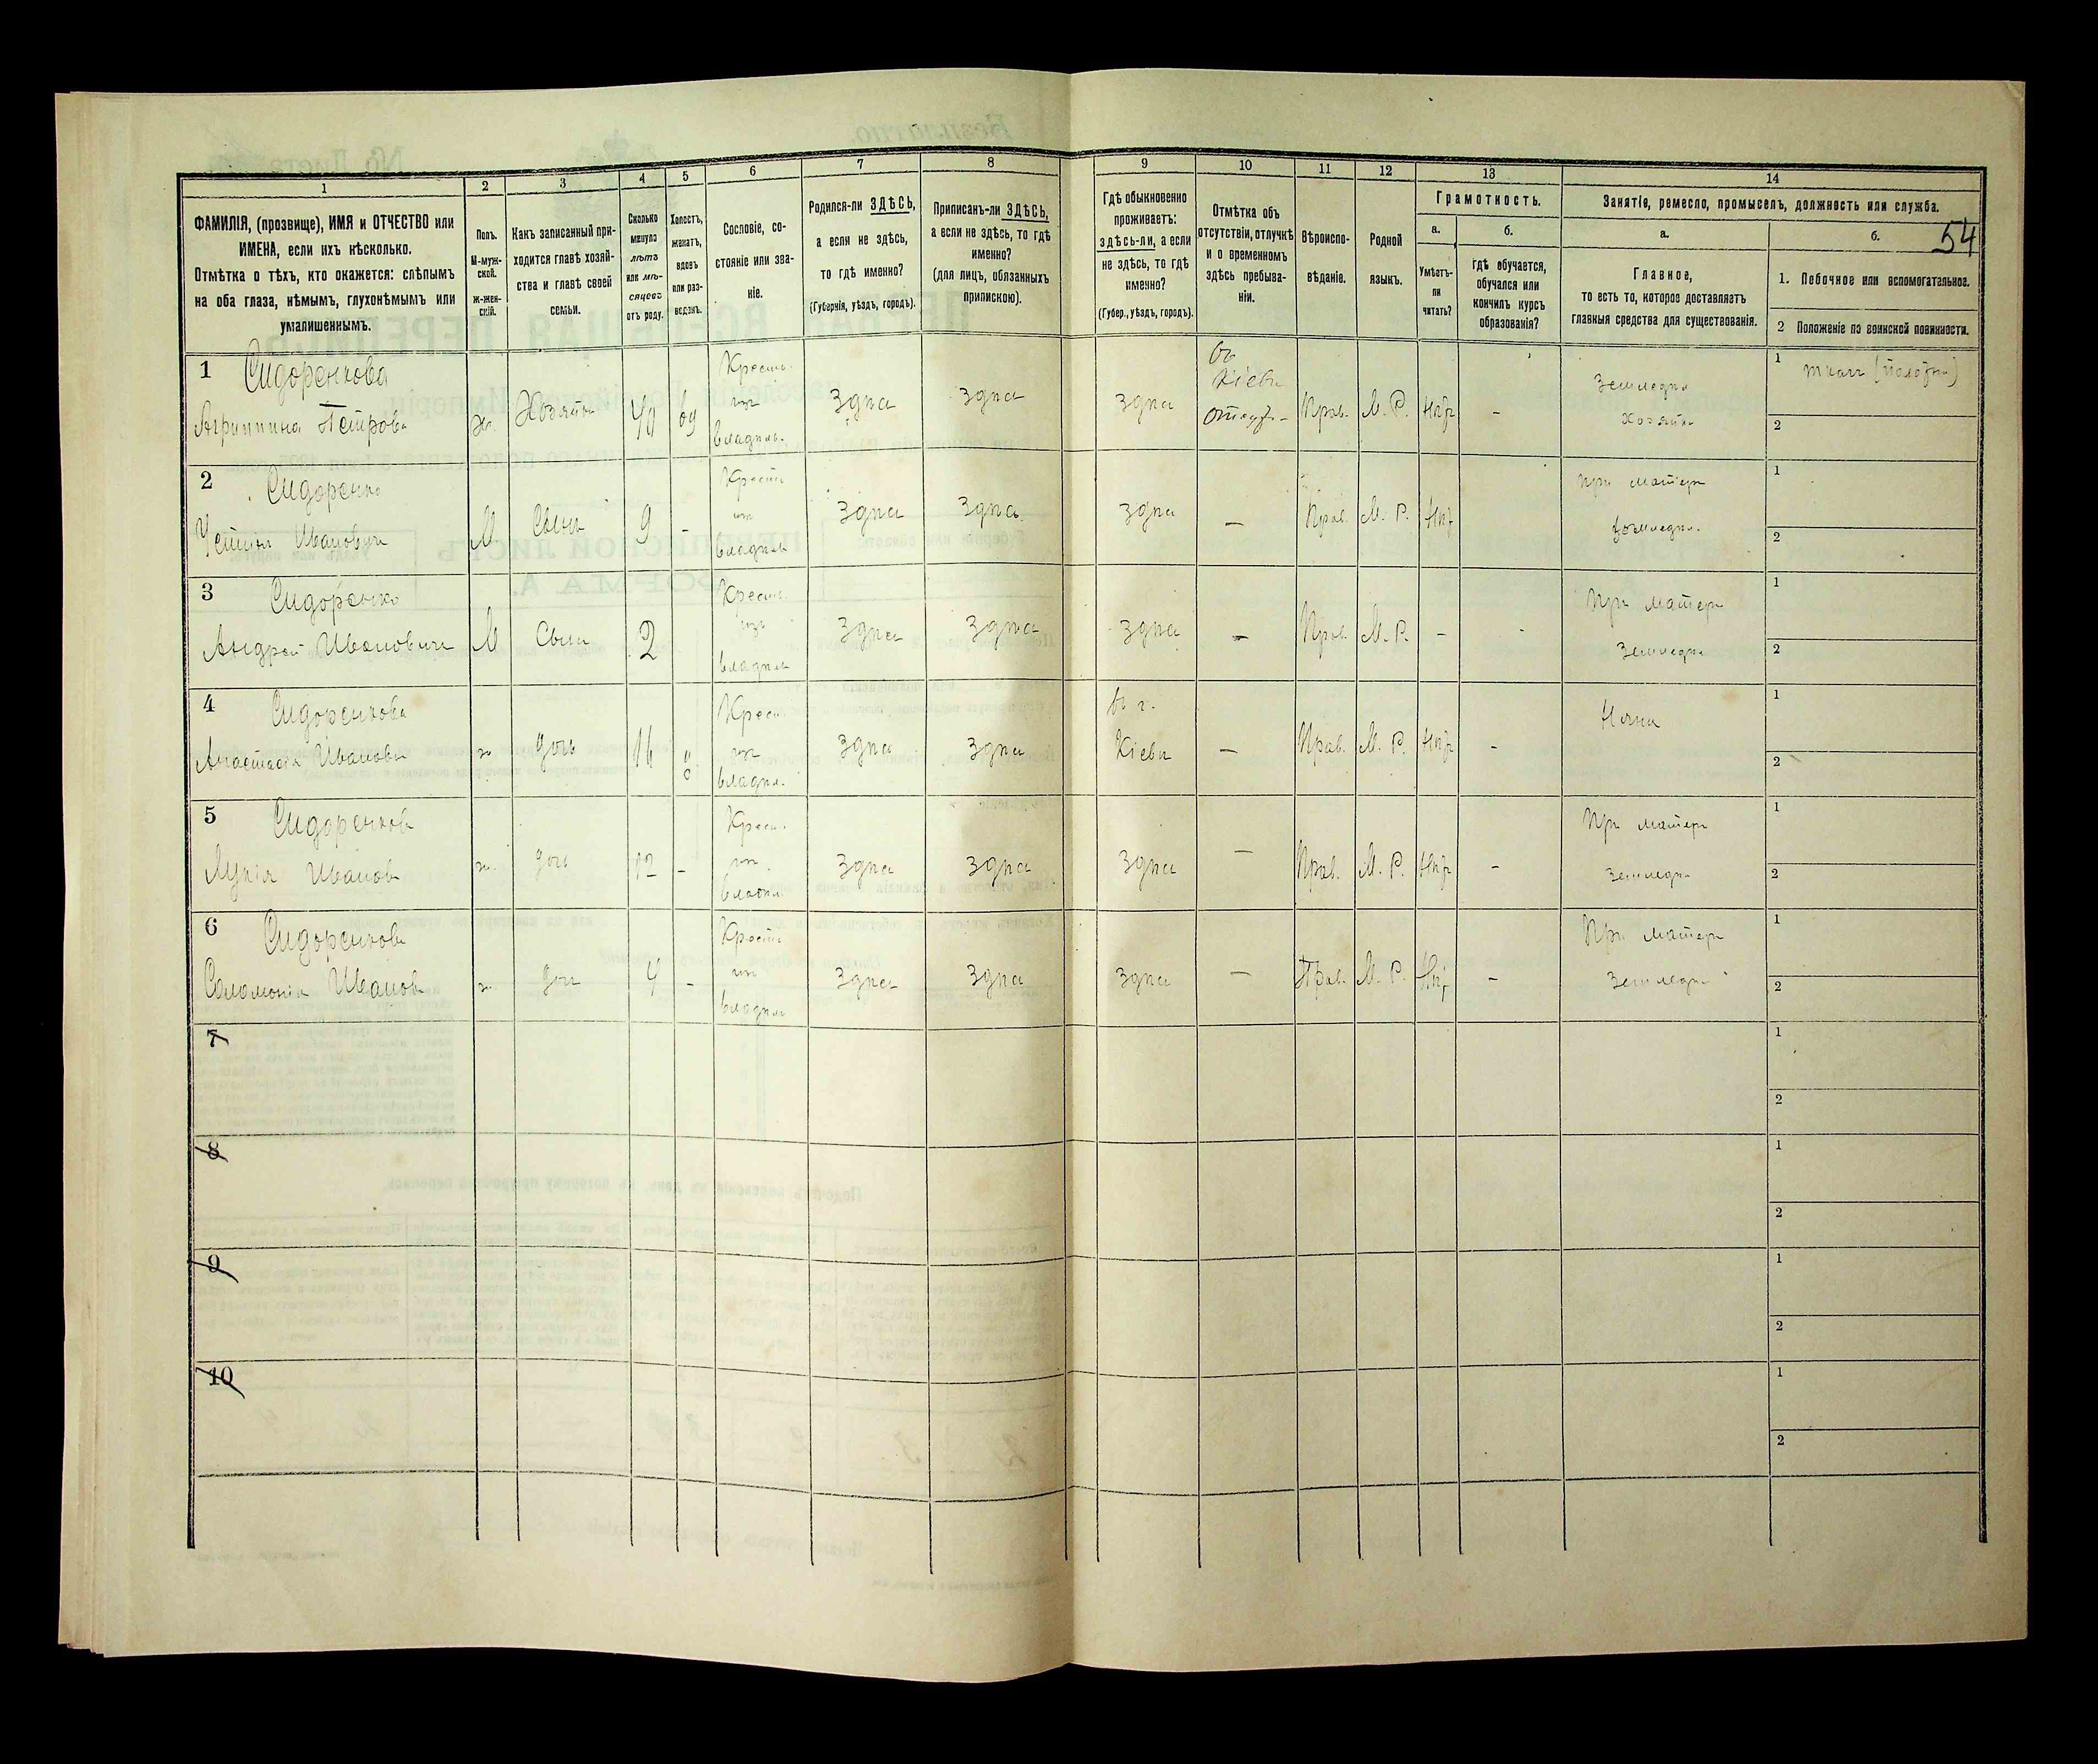 1 2 3 4 5 6 7 8 9 10 11 12 13 14
ФАМИЛІЯ, (прозвище), ИМЯ и ОТЧЕСТВО или
ИМЕНА, если ихъ нѣсколько.
Отмѣтка о тѣхъ, кто окажется: слѣпымъ
на оба глаза, нѣмымъ, глухонѣмымъ или
умалишеннымъ.
Полъ.
М-муж-
ской.
ж-жен-
скій.
Какъ записанный при-
ходится главѣ хозяй-
ства и главѣ своей
семьи.
Сколько
минуло
лѣтъ
или мѣ-
сяцевъ
отъ роду.
Холостъ,
женатъ,
вдовъ
или раз-
веденъ.
Сословіе, со-
стояніе или зва-
ніе.
Родился-ли ЗДѢСЬ,
а если не здѣсь,
то гдѣ именно?
(Губернія, уѣздъ, городъ).
Приписанъ-ли ЗДѢСЬ,
а если не здѣсь, то гдѣ
именно?
(для лицъ, обязанныхъ
припискою).
Гдѣ обыкновенно
проживаетъ:
здѣсь-ли, а если
не здѣсь, то гдѣ
именно?
(Губер., уѣздъ, городъ).
Отмѣтка объ
отсутствіи, отлучкѣ
и о временномъ
здѣсь пребыва-
ніи.
Вѣроиспо-
вѣданіе.
Родной
языкъ.
Грамотность.
а.
Умѣетъ-
ли
читать?
б.
Гдѣ обучается,
обучался или
кончилъ курсъ
образованія?
Занятіе, ремесло, промыселъ, должность или служба.
а.
Главное,
то есть то, которое доставляетъ
главныя средства для существованія.
б.
54
1. Побочное или вспомогательное.
2 Положеніе по воинской повинности.
1 Сидоренкова
Агриппина Петрова
Ж. Хозяйка 40 вд
Кресть.
изъ
владѣль.
здѣсь здѣсь здѣсь
въ
Кіевѣ
Прав. М. Р. Нѣт -
Хозяйка
1
2
2 Сидоренко
Устинъ Ивановичъ
М Сынъ 9 -
изъ
здѣсь здѣсь здѣсь - Прав. М. Р. Нѣт
при матери
1
2
3 Сидоренко
Андрей Ивановичъ
М Сынъ 2
изъ
здѣсь здѣсь здѣсь - Прав. М. Р. -
При матери
1
2
4 Сидоренкова
Анастасія Иванова
ж. дочь 16
изъ
владѣл.
здѣсь здѣсь
въ г.
Кіевѣ
- Прав. М. Р. Нѣт -
Няня
1
2
5 Сидоренков
Лукія Иванов
ж. дочь 12 -
изъ
здѣсь здѣсь здѣсь - Прав. М. Р. Нѣт -
При матери
1
2
6 Сидоренкова
Соломонія Иванов
ж. дочь 4 -
изъ
здѣсь здѣсь здѣсь - Прав. М. Р. Нѣт -
При матери
1
2
7
1
2
8
1
2
9
1
2
10
1
2